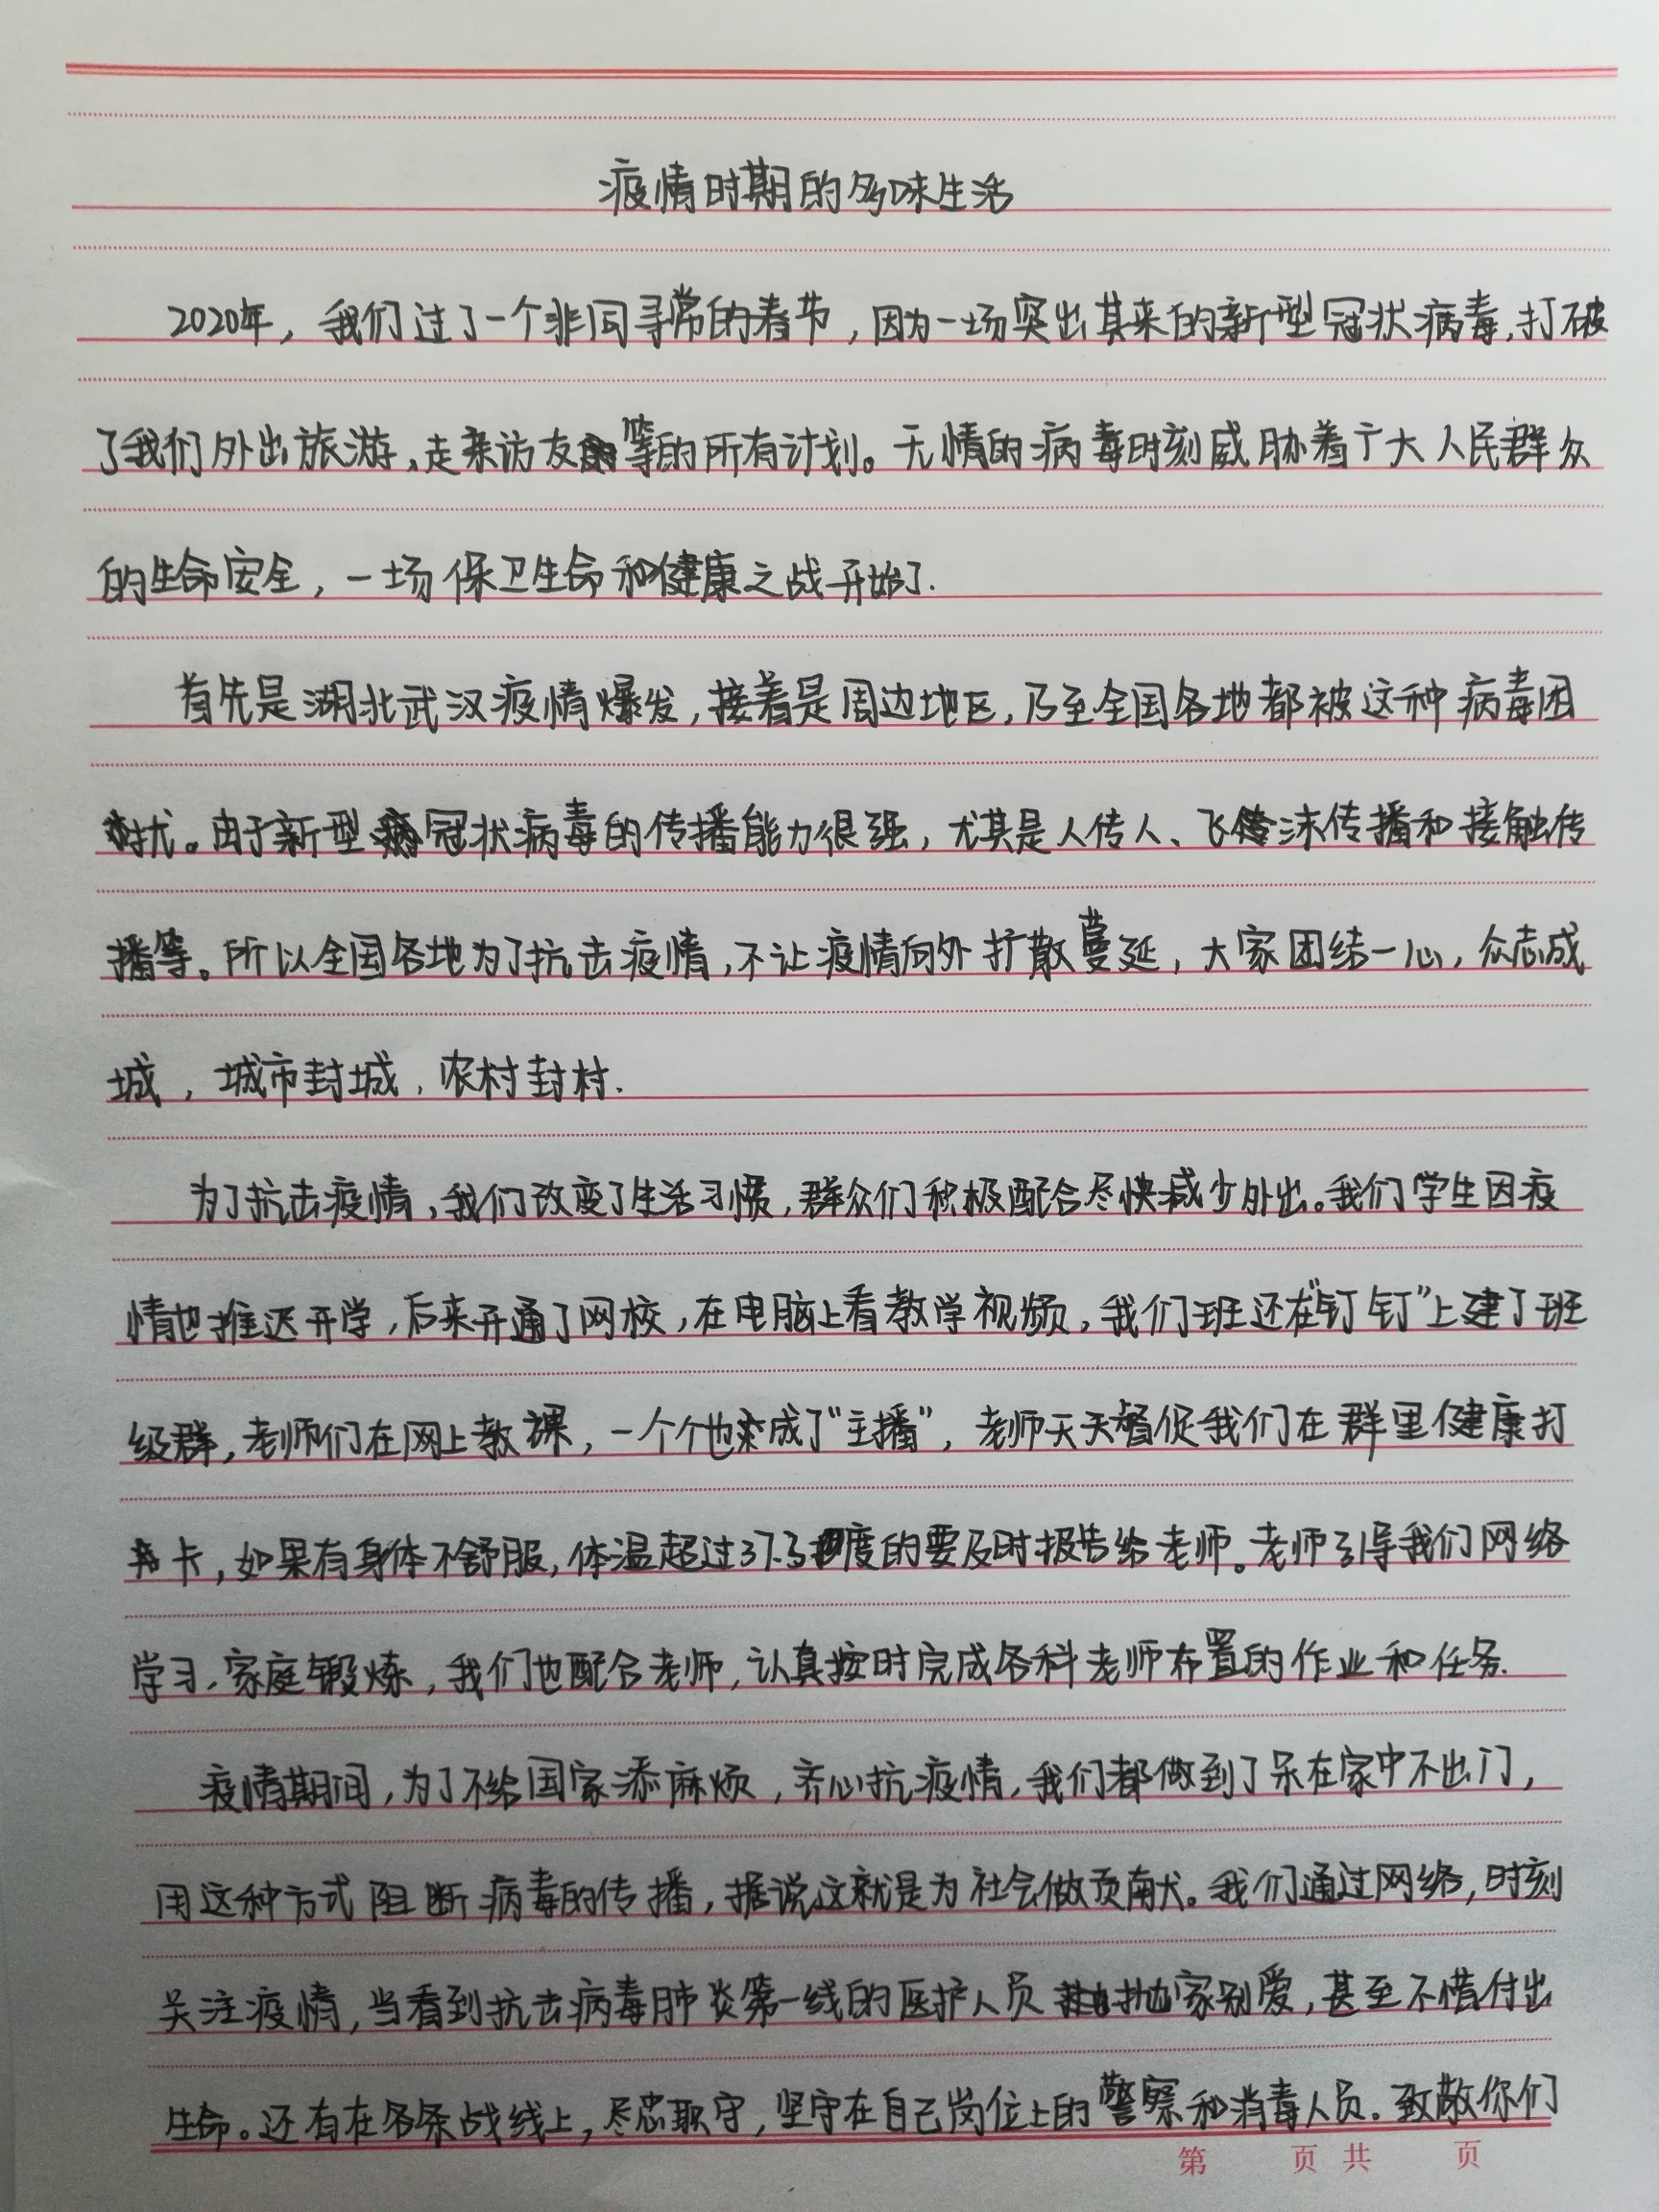 疫情时期的多味生活
2020年，我们过了一个非同寻常的春节，因为一场突出其来的新型冠状病毒，打破
了我们外出旅游、走亲访友等的所有计划。无情的病毒时刻威胁着广大人民群众
的生命安全，一场保卫生命和健康之战开始了.
首先是湖北武汉疫情爆发，接着是周边地区，乃至全国各地都被这种病毒困
扰。由于新型冠状病毒的传播能力很强，尤其是人传人、飞沫传播和接触传
播等。所以全国各地为了抗击疫情，不让疫情向外扩散蔓延，大家团结一心，众志成
城，城市封城，农村封村.
为了抗击疫情，我们改变了生活习惯，群众们积极配合尽快减少外出。我们学生因疫
情也推迟开学，后来开通了网校，在电脑上看教学视频，我们班还在“钉钉”上建了班
级群，老师们在网上教课，一个个也变成了“主播”，老师天天督促我们在群里健康打
卡，如果有身体不舒服，体温超过37.3度的要及时报告给老师。老师引导我们网络
学习、家庭锻炼，我们也配合老师，认真按时完成各科老师布置的作业和任务.
疫情期间，为了不给国家添麻烦，齐心抗疫情，我们都做到了呆在家中不出门，
用这种方式阻断病毒的传播，据说这就是为社会做贡献。我们通过网络，时刻
关注疫情，当看到抗击病毒肺炎第一线的医护人员抛家别爱，甚至不惜付出
生命。还有在各条战线上，尽忠职守，坚守在自己岗位上的警察和消毒人员。致敬你们
第 页 共 页